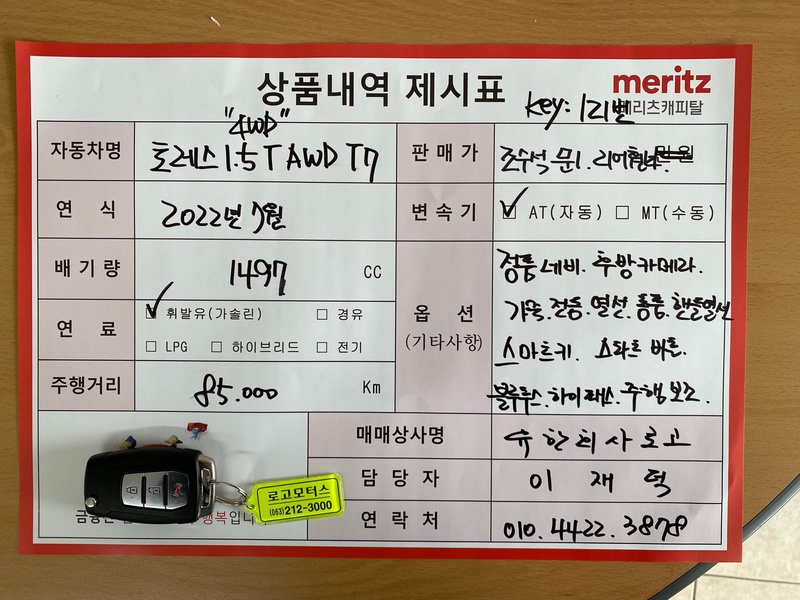 상품내역 제시표
meritz
메리츠캐피탈
"4WD"
Key: 1리벨
자동차명 토레스 1.5 T AWD T7
판매가 조수석 문1. 리어휀다
만원
연 식 2022년 7월
변속기 ✓ AT(자동) □ MT(수동)
배기량 1497 CC
옵 션
(기타사항)
정품네비. 후방카메라.
가죽.전동.열선.통풍.핸들열선
스마트키. 스타트 버튼.
블루투스.하이패스.주행보조.
연 료 ✓ 휘발유(가솔린) □ 경유
□ LPG □ 하이브리드 □ 전기
주행거리 85.000 Km
매매상사명 유한회사로고
담 당 자 이 재 덕
연 락 처 010.4422.3878
로고모터스
(063)212-3000
행복입니